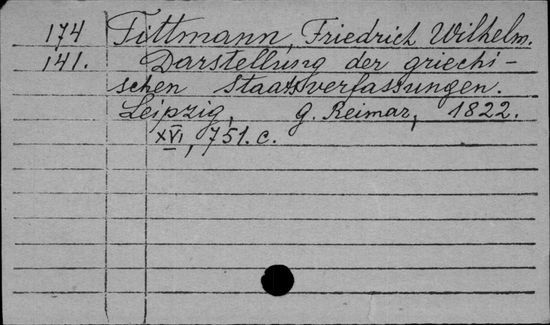 174 Tittmann, Friedrich Wilhelm.
141. Darstellung der griechi-
schen Staatsverfassungen.
Leipzig, G. Reimar, 1822.
XVI, 751. c.